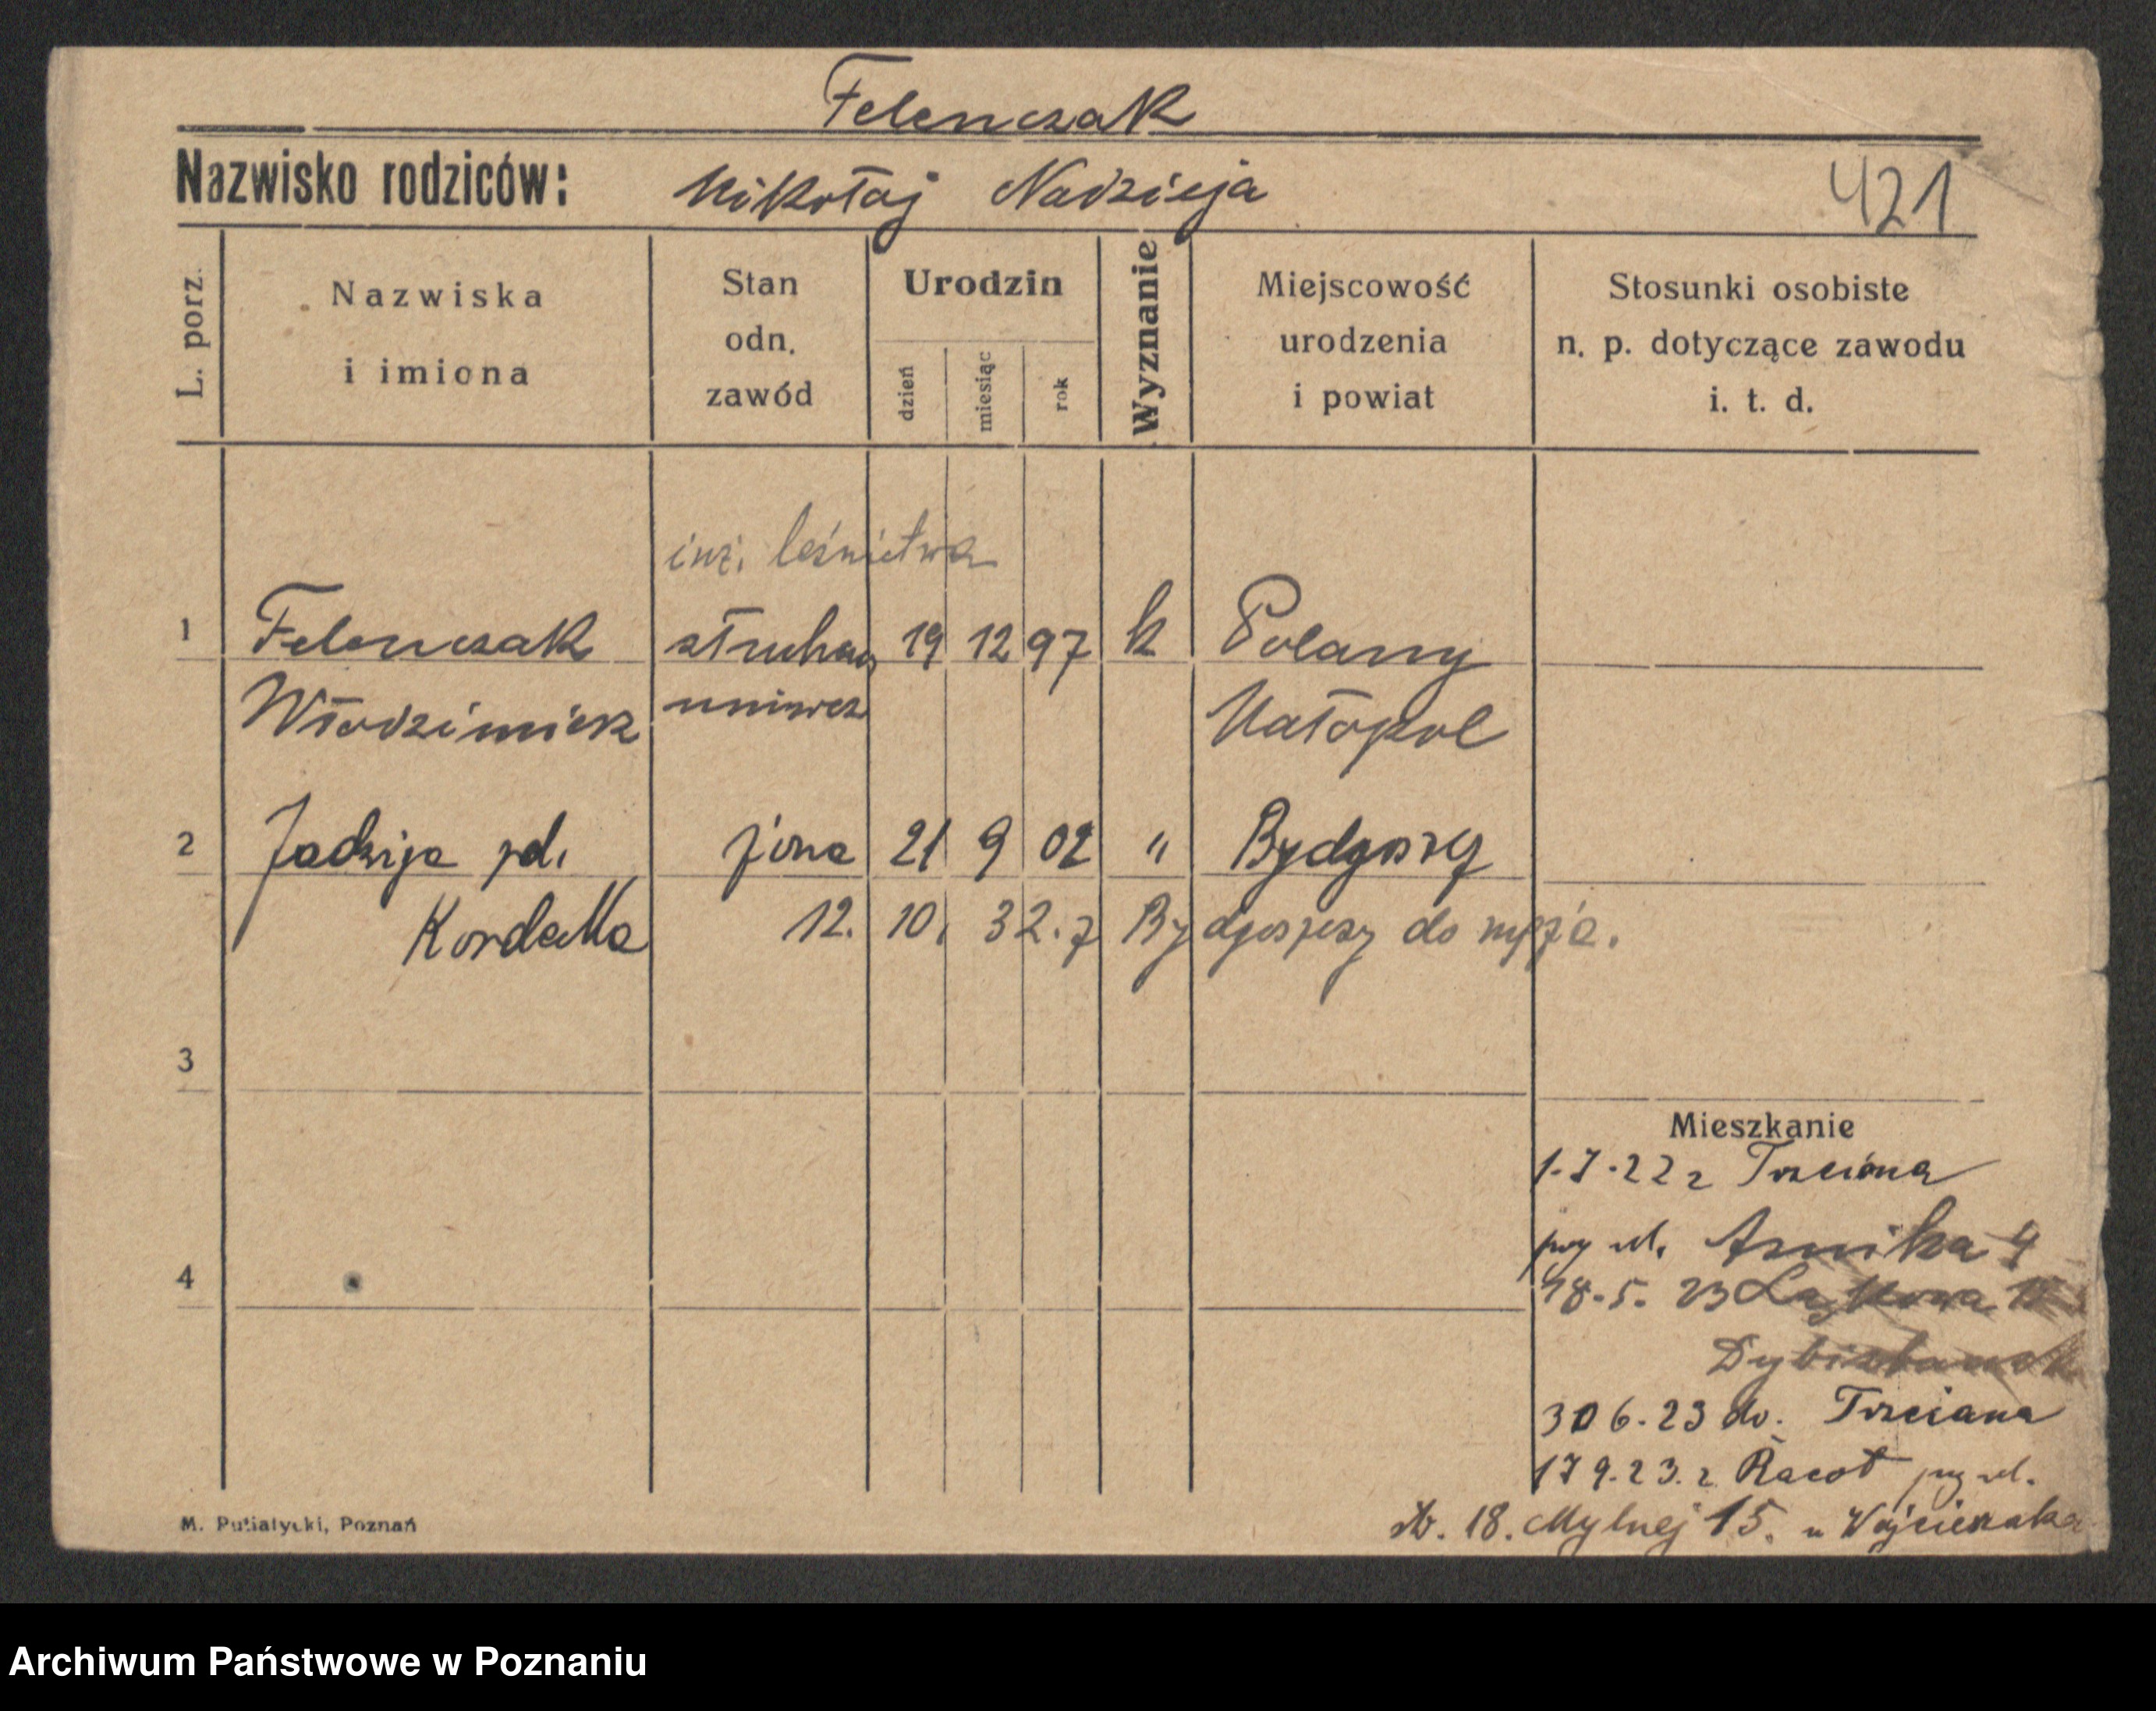 Felenczak
Nazwisko rodziców: Mikołaj Nadzieja 421
L. porz.
Nazwiska i imiona
Stan odn. zawód
Urodzin
dzień miesiąc rok
Wyznanie
Miejscowość urodzenia i powiat
Stosunki osobiste n. p. dotyczące zawodu i. t. d.
inż. leśnictwa
1 Felenczak słuchacz 19 12 97 k Polany
Włodzimierz uniwer. Małopol
2 Jadwiga zd. żona 21 9 02 " Bydgoszcz
12. 10. 32. z Bydgoszczy do męża.
3
Mieszkanie
1.7.22 z Trzciana
przy ul. 4
4
18.5.23 Łąkowa
30 6.23 do. Trzciana
17 9.23. z Racot przy ul.
18. Mylnej 15. u Wojcieszaka
M. Putiatycki, Poznań
Archiwum Państwowe w Poznaniu